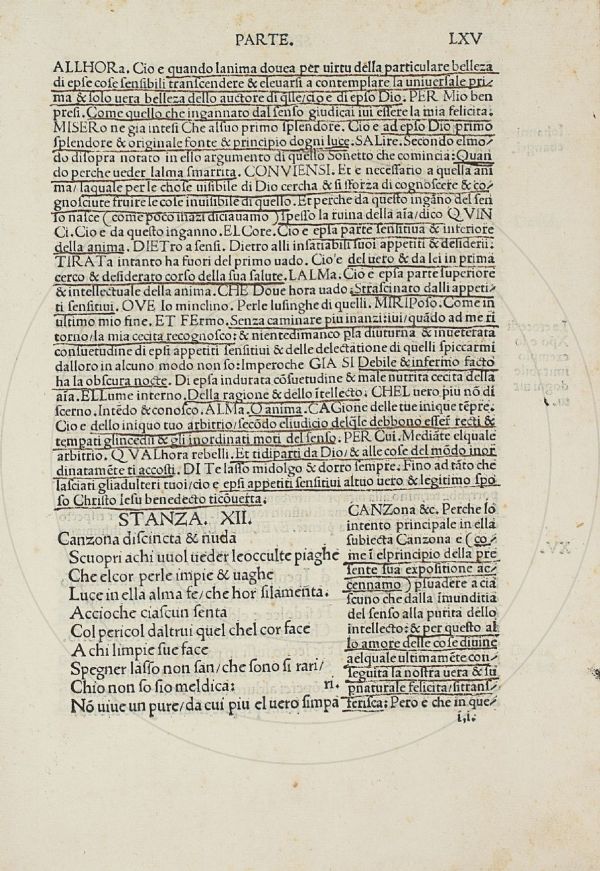 PARTE. LXV
ALLHORa. Cio e quando lanima douea per uirtu della particulare belleza
di epse cose sensibili transcendere & eleuarsi a contemplare la uniuersale pri/
ma & solo uera belleza dello auctore di q̃lle/cio e di epso Dio. PER Mio ben
presi. Come quello che ingannato dal senso giudicai iui essere la mia felicita:
MISERo ne gia intesi Che alsuo primo splendore. Cio e ad epso Dio primo
splendore & originale fonte & principio dogni luce. SALire. Secondo elmo/
do disopra norato in ello argumento di questo Sonetto che comincia: Quan/
do perche ueder lalma smarrita. CONVIENSI. Et e necessario a quella ani
ma/laquale per le chose uisibile di Dio cercha & si sforza di cognoscere & co/
gnosciute fruire le cose inuisibile di quello. Et perche da questo ingãno del sen
so nasce (come poco inãzi diciauamo) spesso la ruina della aĩa/dico QVIN
Ci. Cio e da questo inganno. EL Core. Cio e epsa parte sensitiua & inferiore
della anima. DIETro a sensi. Dietro alli insatiabili suoi appetiti & desiderii:
TIRATa intanto ha fuori del primo uado. Cio e del uero & da lei in prima
cerco & desiderato corso della sua salute. LALMa. Cio e epsa parte superiore
& intellectuale della anima. CHE Doue hora uado. Strascinato dalli appeti/
ti sensitiui. OVE Io minclino. Perle lusinghe di quelli. MI RIPoso. Come in
ultimo mio fine. ET FErmo. Senza caminare piu inanzi: iui/quãdo ad me ri
torno/la mia cecita recognosco: & nientedimanco pla diuturna & inueterata
consuetudine di epsi appetiti sensitiui & delle delectatione di quelli spiccarmi
dalloro in alcuno modo non so: Imperoche GIA SI Debile & infermo facto
ha la obscura nocte. Di epsa indurata cõsuetudine & male nutrita cecita della
aĩa. EL Lume interno. Della ragione & dello ĩtellecto: CHEL uero piu nõ di
scerno. Intẽdo & conosco. ALMa. O anima. CAGione delle tue inique tẽpre.
Cio e dello iniquo tuo arbitrio/secõdo eliudicio delq̃le debbono esser̃ recti &
tempati glincedii & gli inordinati moti del senso. PER Cui. Mediãte elquale
arbitrio. QVALhora rebelli. Et tidiparti da Dio/& alle cose del mõdo inor
dinatamẽte ti accosti. DI TE lasso midolgo & dorro sempre. Fino ad tãto che
lasciati gliadulteri tuoi/cio e epsi appetiti sensitiui altuo uero & legitimo spo/
so Christo Iesu benedecto ticõuerta.
STANZA. XII.
Canzona discincta & nuda
Scuopri achi uuol ueder leocculte piaghe
Che elcor perle impie & uaghe
Luce in ella alma fe/che hor silamenta.
Accioche ciascun senta
Col pericol daltrui quel chel cor face
A chi limpie sue face
Spegner lasso non san/che sono si rari/
Chio non so sio meldica: ri.
Nõ uiue un pure/da cui piu el uero simpa
CANZona &c. Perche lo
intento principale in ella
subiecta Canzona e (co/
me ĩ elprincipio della pre
sente sua expositione ac/
cennamo) psuadere a cia
scuno che dalla imunditia
del senso alla purita dello
intellecto: & per questo al
lo amore delle cose diuine
aelquale ultimamẽte con/
seguita la nostra uera & su
pnaturale felicita/sitrans/
ferisca: Pero e che in que/
i,i.